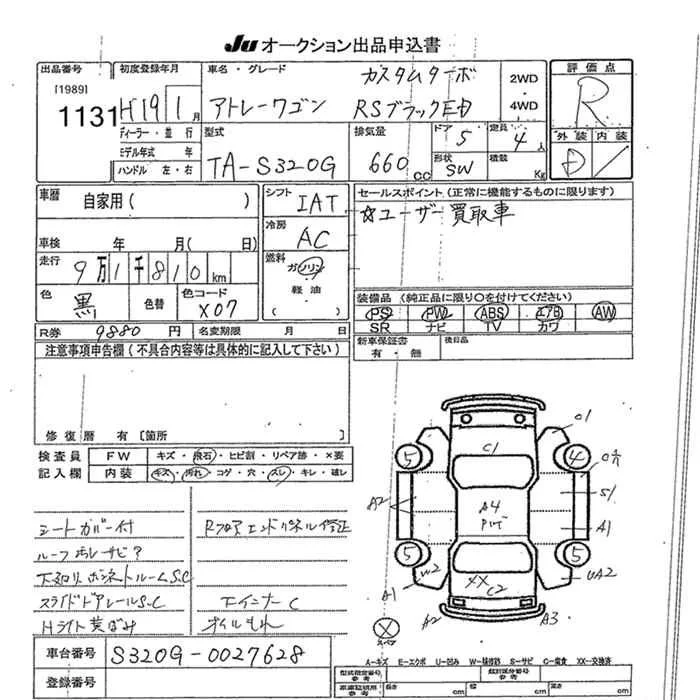 JU オークション出品申込書
出品番号
[1989]
1131
初度登録年月
H19 1月
ディーラー・並行
モデル年式 年
ハンドル 左・右
車名・グレード
カスタムターボ
アトレーワゴン RSブラックED
2WD
4WD
評価点
R
外装 内装
D
型式
TA-S320G
排気量
660 CC
ドア 5
定員 4人
形状 SW
積載 Kg
車歴
自家用( )
車検 年 月( 日)
走行
9万1千810km
色
黒
色替
色コード
X07
R券 9880 円
名変期限 月 日
シフト
IAT
冷房
AC
燃料
ガソリン
軽油
( )
セールスポイント (正常に機能するものに限ります)
☆ユーザー買取車
装備品 (純正品に限り○を付けてください)
PS PW ABS エアB AW
SR ナビ TV カワ
新車保証書
有・無
後日品
注意事項申告欄 (不具合内容等は具体的に記入して下さい)
修復暦 有 [箇所 ]
検査員
記入欄
FW キズ・飛石・ヒビ割・リペア跡・×要
内装 キズ・汚れ・コゲ・穴・スレ・キレ・破レ
シートカバー付
ルーフ
下廻り ボンネットルームS.C
スライドドアレールS.C
Hライト黄ばみ
Rフロアエンドパネル修正
Fインナー C
オイルもれ
C1
O1
5
4
S1
A2
A4
A1
5
5
W2
A1
XX
C2
UA2
A2
A3
X
A―キズ E―エクボ U―凹み W―補修跡 S―サビ C―腐食 XX―交換済
車台番号 S320G-0027628
登録番号
型式指定番号
参考
類別区分番号
参考
車庫証明用
参考
長さ cm
幅 cm
高さ cm